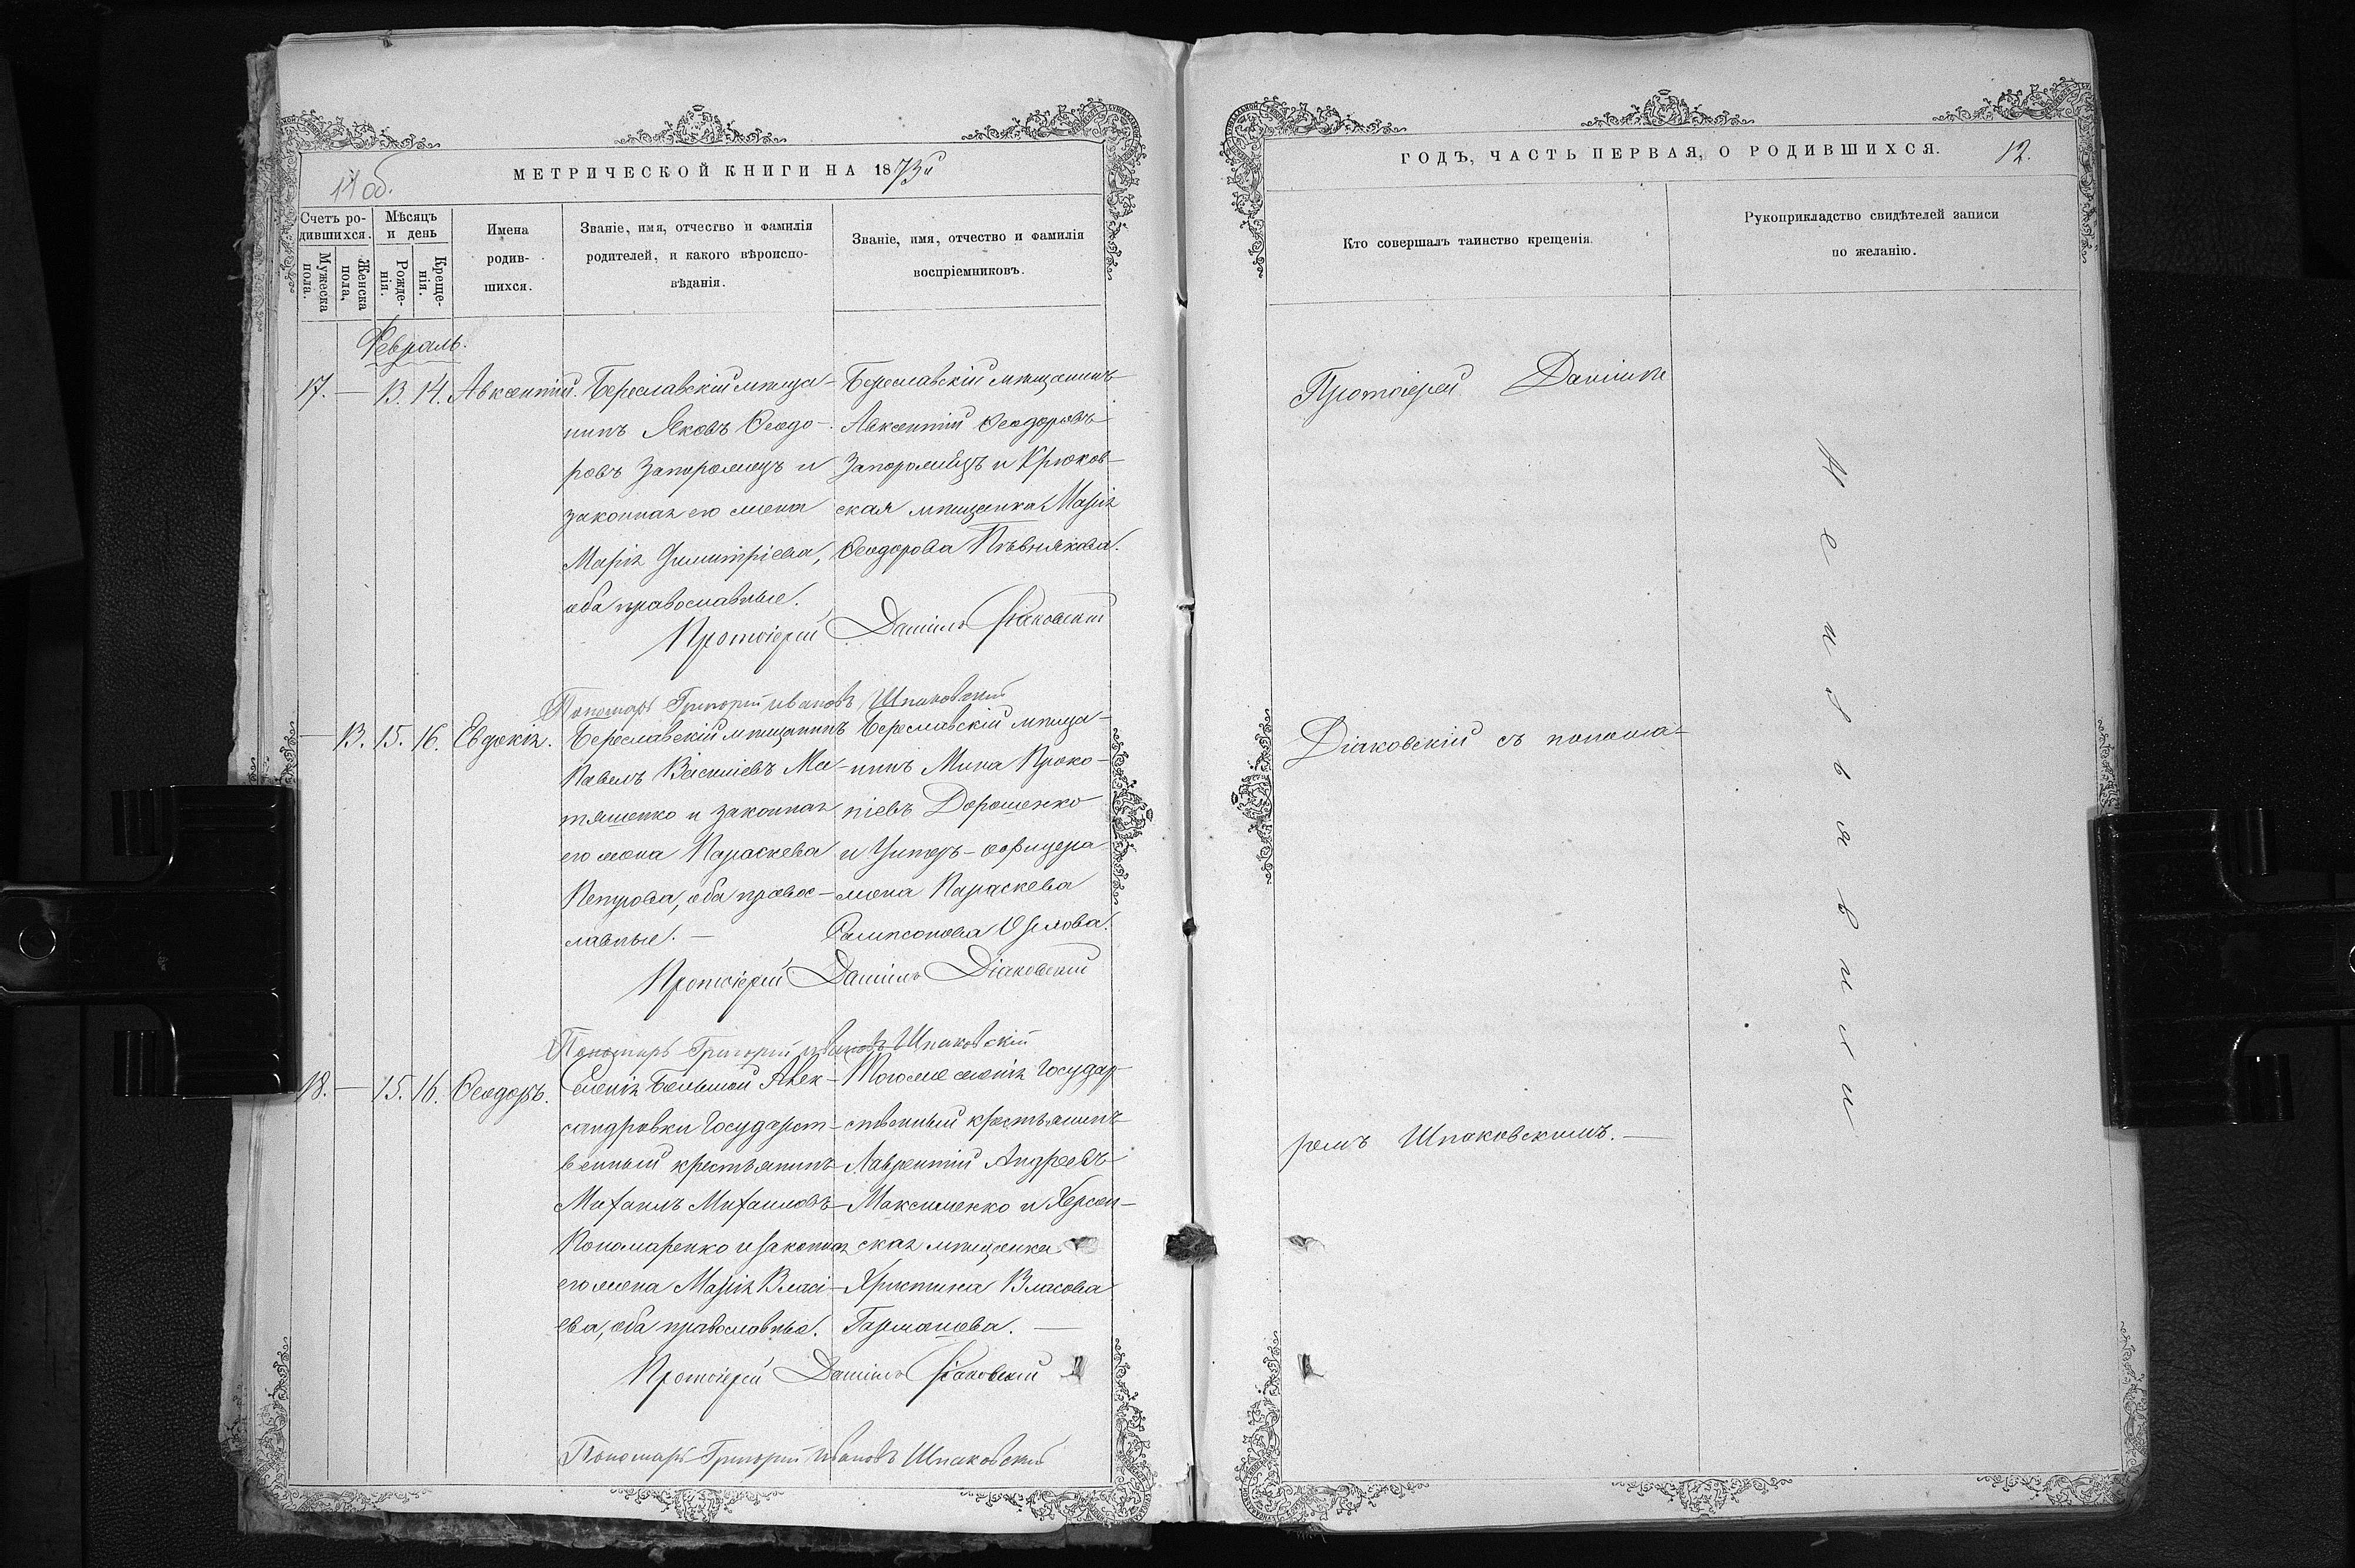 МЕТРИЧЕСКОЙ КНИГИ НА 1873й
11 об.
Счетъ ро-
дившихся.
Мужеска
пола.
Женска
пола.
Мѣсяцъ
и день
Рожде-
нія.
Креще-
нія.
Имена
родив-
шихся.
Званіе, имя, отчество и фамилія
родителей, и какого вѣроиспо-
вѣданія.
Званіе, имя, отчество и фамилія
воспріемниковъ.
Февраль.
17. — 13. 14. Авксентій.
Береславскій мѣща-
нинъ Яковъ Ѳеодо-
ровъ Запорожецъ и
законная его жена
Марія Димитріева,
оба православные.
Береславскій мѣщанинъ
Авксентій Ѳеодоровъ
Запорожецъ и Крюков-
ская мѣщанка Марія
Ѳеодорова Пѣвнякова.
Протоіерей Даніилъ Діаковскій
Пономарь Григорій Ивановъ Шпаковскій
— 13. 15. 16. Евдокія.
Береславскій мѣщанинъ
Павелъ Василіевъ Ма-
тяшенко и законная
его жена Параскева
Петрова, оба правос-
лавные. —
Береславскій мѣща-
нинъ Мина Проко-
піевъ Дорошенко
и Унтеръ-офицера
жена Параскева
Сампсонова
Протоіерей Даніилъ Діаковскій
Пономарь Григорій Ивановъ Шпаковскій
18. — 15. 16. Ѳеодоръ.
Селенія Большой Алек-
сандровки Государст-
венный крестьянинъ
Михаилъ Михаиловъ
Пономаренко и законная
его жена Марія Власі-
ева, оба православные.
Тогоже селенія Государ-
ственный крестьянинъ
Лаврентій Андреевъ
Максименко и Херсон-
ская мѣщанка
Христина Власова
Гармашова. —
Протоіерей Даніилъ Діаковскій
Пономарь Григорій Ивановъ Шпаковскій
ГОДЪ, ЧАСТЬ ПЕРВАЯ, О РОДИВШИХСЯ.
12.
Кто совершалъ таинство крещенія.
Рукоприкладство свидѣтелей записи
по желанію.
Протоіерей Даніилъ
Діаковскій съ понома-
ремъ Шпаковскимъ. —